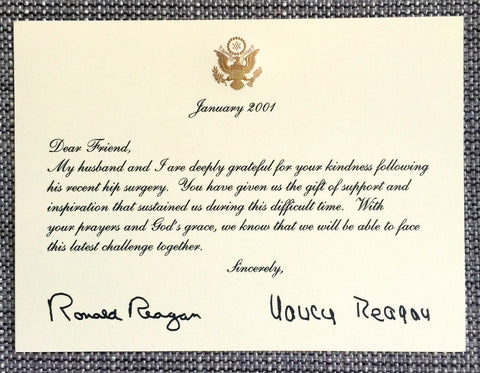 January 2001
Dear Friend,
My husband and I are deeply grateful for your kindness following
his recent hip surgery. You have given us the gift of support and
inspiration that sustained us during this difficult time. With
your prayers and God's grace, we know that we will be able to face
this latest challenge together.
Sincerely,
Ronald Reagan Nancy Reagan